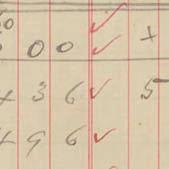 0 0 0 ✓ +
4 3 6 ✓ 5
4 9 6 ✓